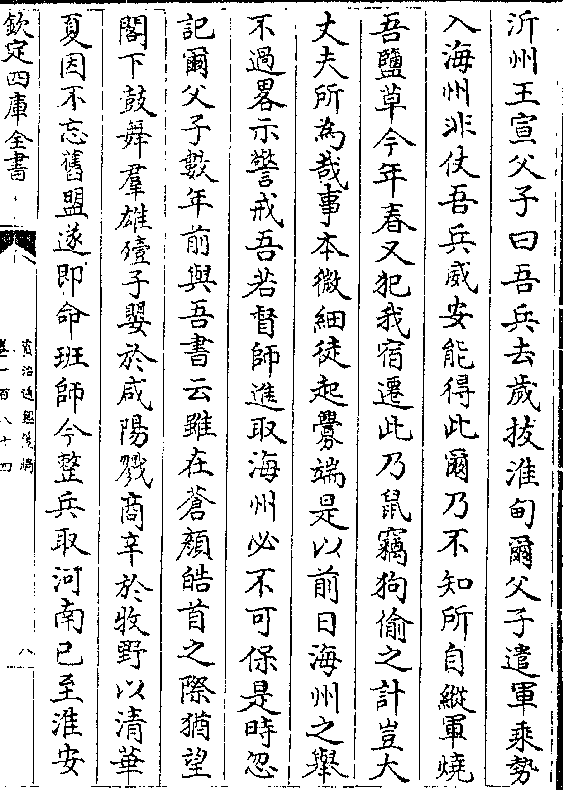 沂州王宣父子曰吾兵去歲拔淮甸爾父子遣軍乘勢
入海州非仗吾兵威安能得此爾乃不知所自縱軍燒
吾鹽草今年春又犯我宿遷此乃鼠竊狗偷之計豈大
丈夫所為哉事本微細徒起釁端是以前日海州之舉
不過畧示警戒吾若督師進取海州必不可保是時忽
記爾父子數年前與吾書云雖在蒼顔皓首之際猶望
閣下鼓舞羣雄殪子嬰於咸陽戮商辛於牧野以清華
夏因不忘舊盟遂即命班師今整兵取河南已至淮安
欽定四庫全書
資治通鑑後編
卷一百八十四
八